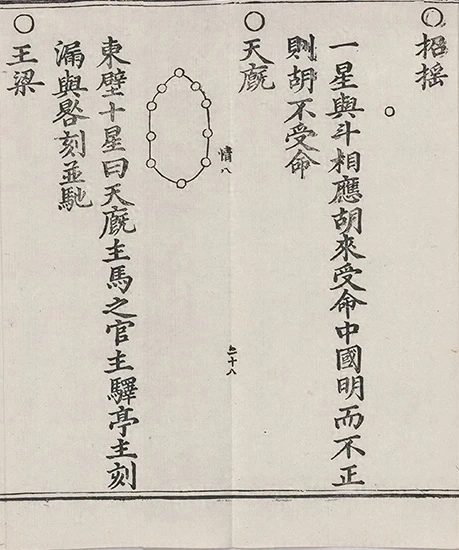 招搖
一星與斗相應胡來受命中國明而不正
則胡不受命
天廐
情八
二十八
東壁十星曰天廐主馬之官主驛亭主刻
漏與晷刻並馳
王梁